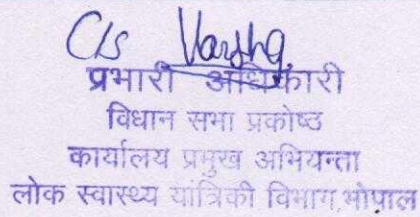 C/s Varsha
प्रभारी अधिकारी
विधान सभा प्रकोष्ठ
कार्यालय प्रमुख अभियन्ता
लोक स्वास्थ्य यांत्रिकी विभाग, भोपाल